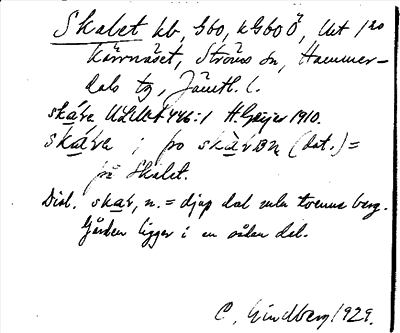 Skalet hb, Gbo, kGboÖ, Uet 120
Kärrnäset, Ströms sn, Hammer-
dals tg, Jämtl. l.
skára ULMA 446:1 H. Geijer 1910.
skára ; po skàrɒn (dat.) =
på Skalet.
Dial. skar, n. = djup dal mln tvenne berg.
Gården ligger i en sådan del.
C. Lindberg 1929.